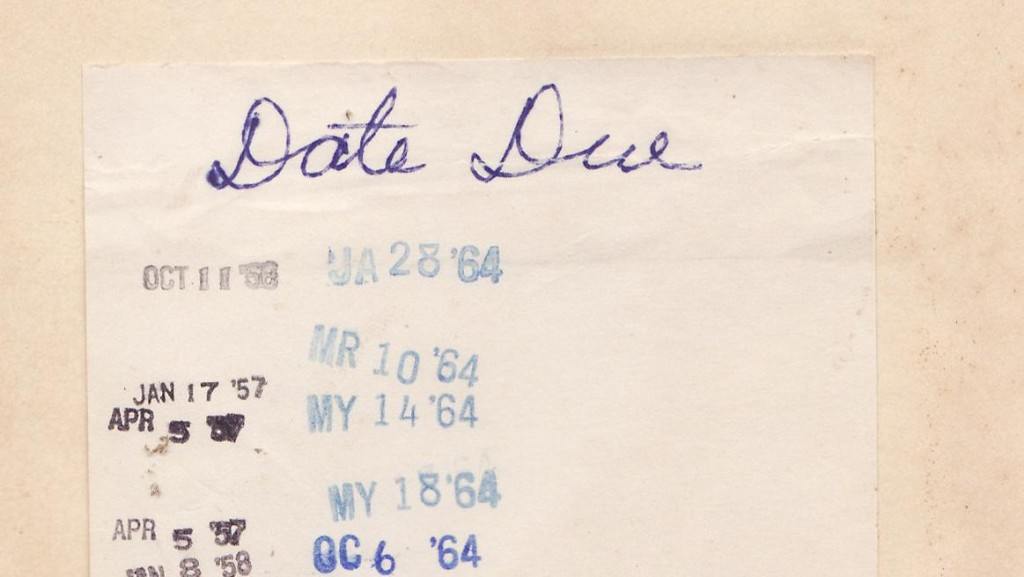 Date Due
OCT 11 '56
JA 28 '64
MR 10 '64
JAN 17 '57
MY 14 '64
APR 5 '57
MY 18 '64
APR 5 '57
OC 6 '64
JAN 8 '58